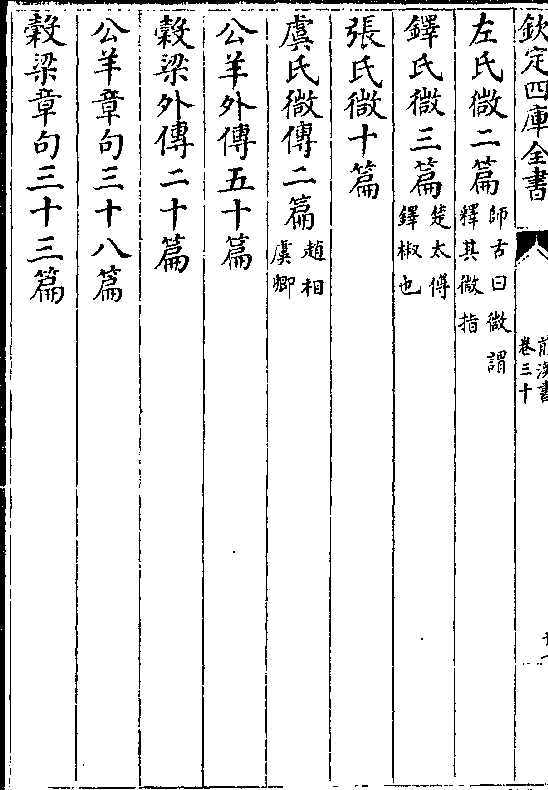 欽定四庫全書
前漢書
卷三十
左氏微二篇師古曰微謂釋其微指
鐸氏微三篇楚太傅鐸椒也
張氏微十篇
虞氏微傳二篇趙相虞卿
公羊外傳五十篇
穀梁外傳二十篇
公羊章句三十八篇
穀梁章句三十三篇